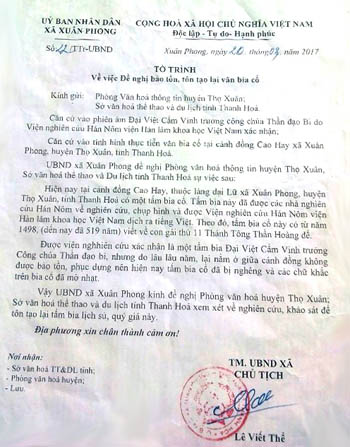 UỶ BAN NHÂN DÂN
XÃ XUÂN PHONG
CỘNG HOÀ XÃ HỘI CHỦ NGHĨA VIỆT NAM
Độc lập - Tự do- Hạnh phúc
Số 22/TTr-UBND
Xuân Phong, ngày 20 tháng 03 năm 2017
TỜ TRÌNH
Về việc Đề nghị bảo tồn, tôn tạo lại văn bia cổ
Kính gửi: Phòng Văn hoá thông tin huyện Thọ Xuân;
Sở văn hoá thể thao và du lịch tỉnh Thanh Hoá.
Căn cứ vào phiên âm Đại Việt Cẩm Vinh trưởng công chúa Thần đạo Bi do
Viện nghiên cứu Hán Nôm Viện Hàn lâm khoa học Việt Nam xác nhận;
Căn cứ vào tình hình thực tiễn văn bia cổ tại cánh đồng Cao Hay xã Xuân
Phong, huyện Thọ Xuân, tỉnh Thanh Hoá.
UBND xã Xuân Phong đề nghị Phòng văn hoá thông tin huyện Thọ Xuân,
Sở văn hoá thể thao và Du lịch tỉnh Thanh Hoá sự việc sau:
Hiện nay tại cánh đồng Cao Hay, thuộc làng đại Lữ xã Xuân Phong, huyện
Thọ Xuân, tỉnh Thanh Hoá có một tấm bia cổ. Tấm bia này đã được các nhà nghiên cứu
Hán Nôm về nghiên cứu, chụp hình và được Viện nghiên cứu Hán Nôm viện
Hàn lâm khoa học Việt Nam dịch ra tiếng Việt. Theo đó, tấm bia này có từ năm
1498, (đến nay đã 519 năm) viết về con gái thứ 11 Thánh Tông Thần Hoàng đế.
Được viện nghiên cứu xác nhận là một tấm bia Đại Việt Cẩm Vinh trưởng
Công chúa Thần đạo bi, nhưng do lâu lâu năm, lại nằm ở giữa cánh đồng không
được bảo tồn, phục dựng nên hiện nay tấm bia cổ đã bị nghiêng và các chữ khắc
trên bia cổ đã mờ nhạt.
Vậy UBND xã Xuân Phong kính đề nghị Phòng văn hoá huyện Thọ Xuân;
Sở văn hoá thể thao và du lịch tỉnh Thanh Hoá xem xét về nghiên cứu, khảo sát để
tôn tạo lại tấm bia lịch sử, quý giá này.
Địa phương xin chân thành cảm ơn!
Nơi nhận:
- Sở văn hoá TT&DL tỉnh;
- Phòng văn hoá huyện;
- Lưu.
TM. UBND XÃ
CHỦ TỊCH
Lê Viết Thể